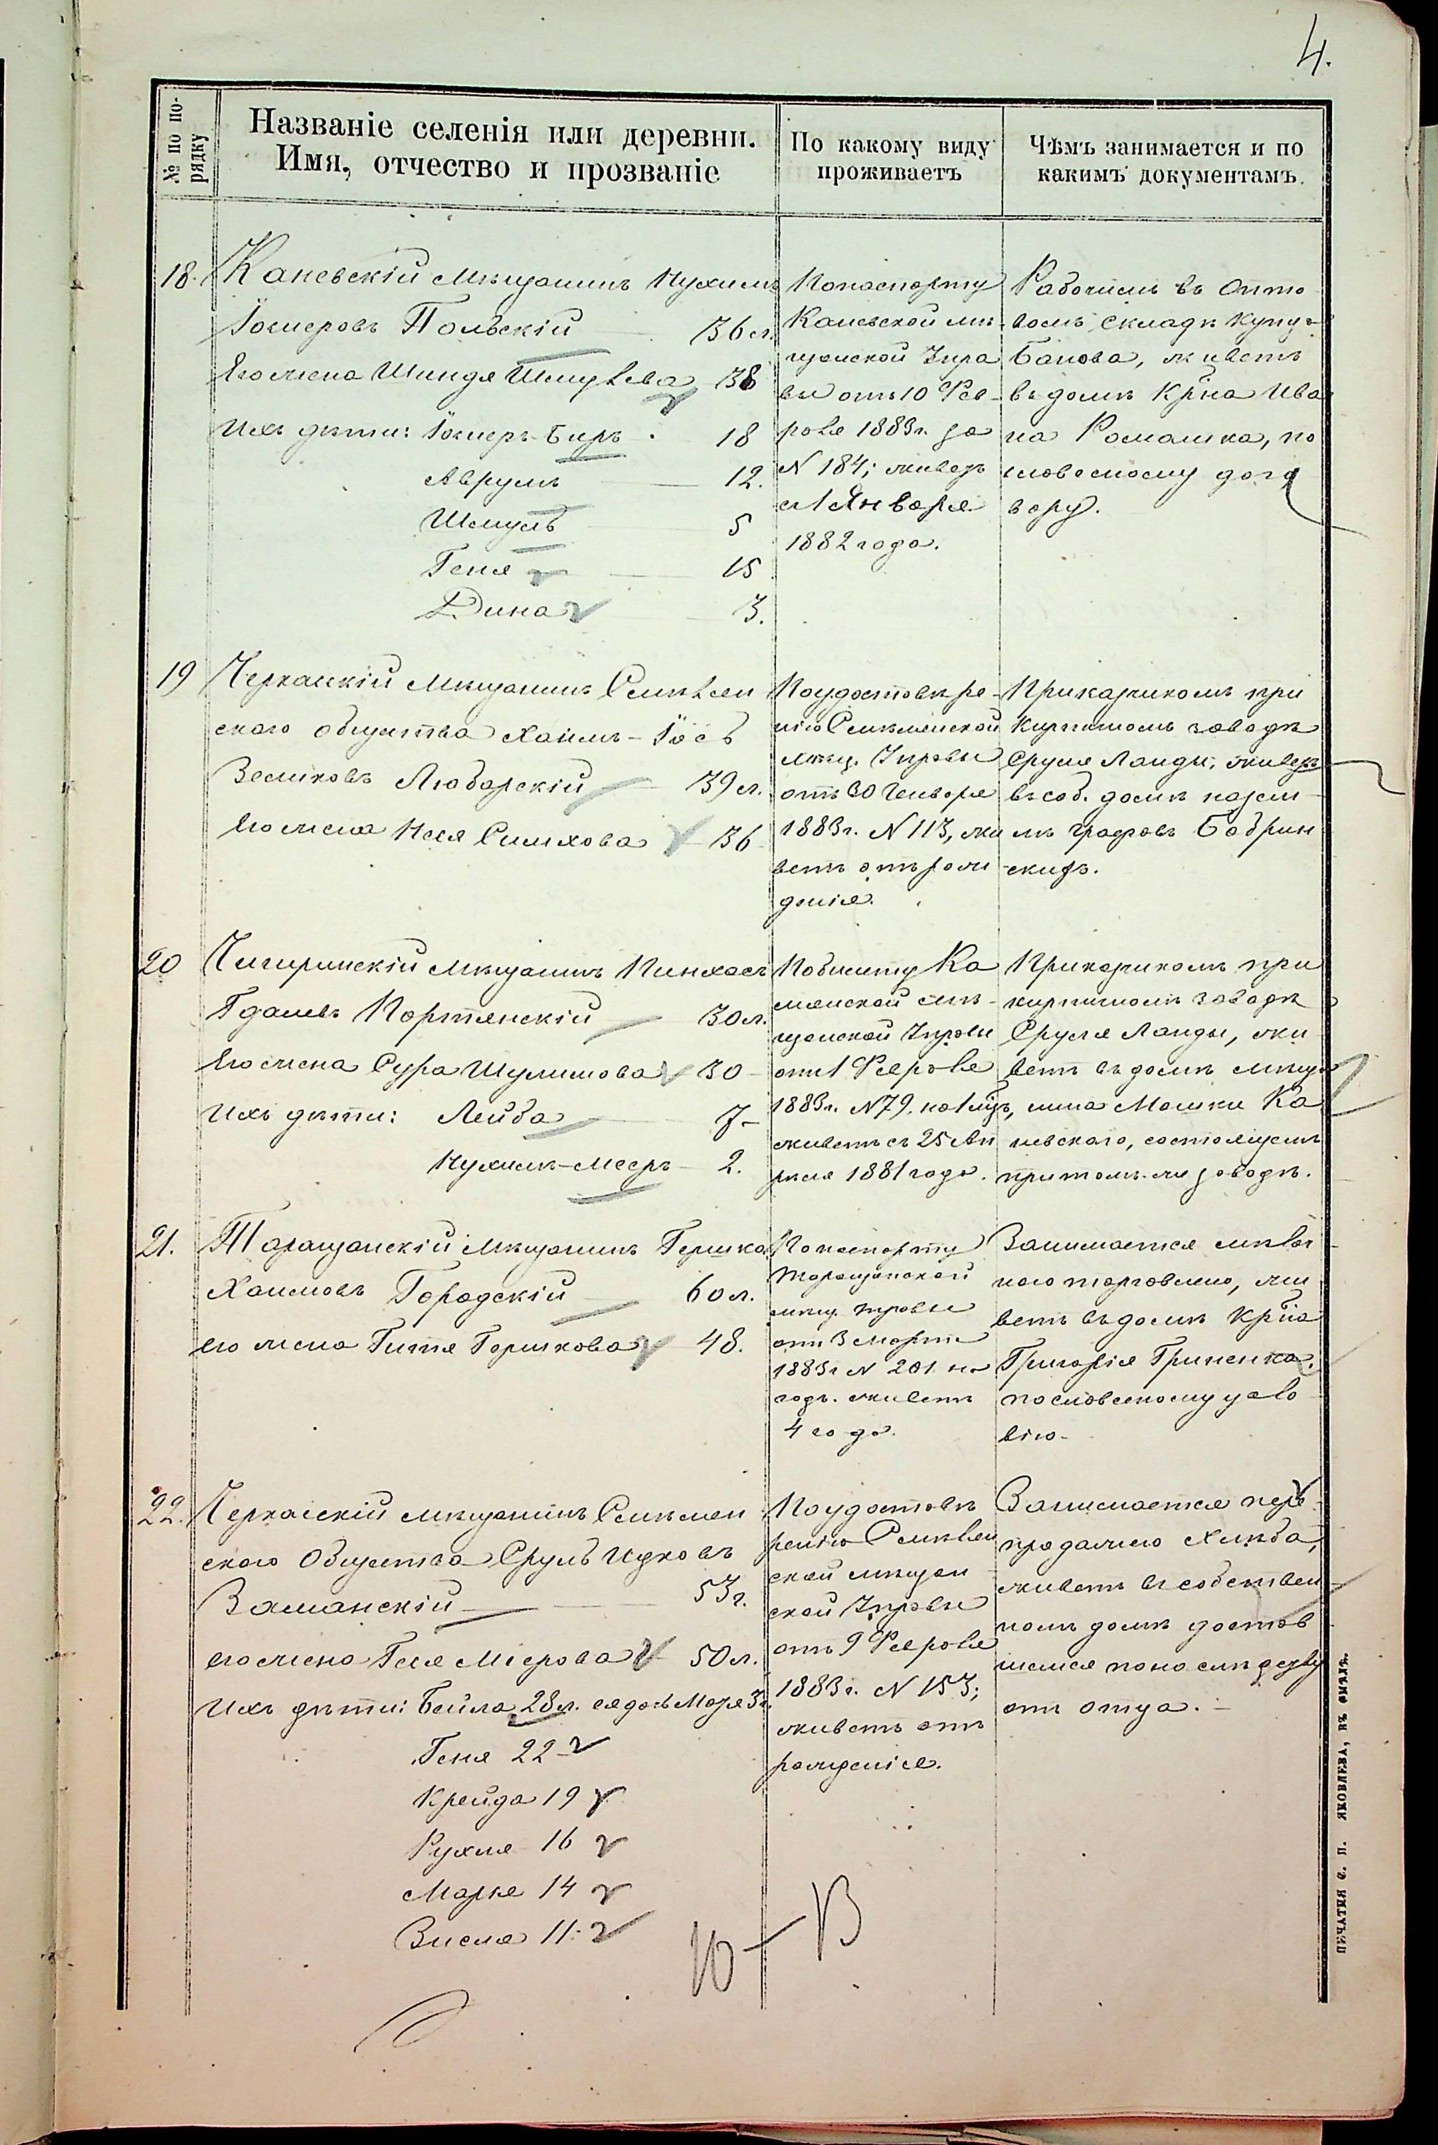 4.
№ по по-
рядку
Названіе селенія или деревни.
Имя, отчество и прозваніе
По какому виду
проживаетъ
Чѣмъ занимается и по
какимъ документамъ.
18. Каневскій мѣщанинъ Нухимъ
Польскій 36 л.
Его жена Шиндля Шмулева 38
Ихъ дѣти: Беръ 18
Аврумъ 12.
Шмуль 5
Геня 15
Дина 3.
По паспорту
Каневской мѣ-
щанской Упра
вы отъ 10 Фев-
раля 1883 г. за
N 184; живетъ
съ 1 Января
1882 года.
Рабочимъ въ опто
вомъ складѣ купца
живетъ
въ домѣ Кр-на Ива
на Ромашка, по
словесному дого
вору.
19 Черкасскій мѣщанинъ Смѣлян
скаго общества Хаимъ-Іосъ
Зеликовъ Любарскій 39 л.
Его жена Нехя Симхова 36
По удостовѣре-
нію Смѣлянской
мѣщ. Управы
отъ 30 Генваря
1883 г. N 113, жи
ветъ отъ рож
денія.
Прикащикомъ при
кирпичномъ заводѣ
Сруля Ланды, живетъ
въ соб. домѣ на зем-
лѣ графовъ Бобрин
скихъ.
20 Чигиринскій мѣщанинъ Пинхасъ
Гдалевъ Портянскій 30 л.
Его жена Сура Шулимова 30
Ихъ дѣти: Лейба 7
Нухимъ-Мееръ 2.
По билету Ка
менской мѣ-
щанской Управы
отъ 1 Февраля
1883 г. N 79.
живетъ съ 25 Ап
рѣля 1881 года.
Прикащикомъ при
кирпичномъ заводѣ
Сруля Ланды, жи
ветъ въ домѣ мѣща
нина Мошки Ка
невскаго, состоящемъ
при томъ-же заводѣ.
21. Таращанскій мѣщанинъ Гершко
Хаимовъ Городскій 60 л.
его жена Гитля Гершкова 48.
По паспорту
Таращанской
мѣщ. управы
отъ 3 Марта
1883 г N 201 на
годъ. живетъ
4 года.
Занимается мѣлоч
ною торговлею, жи
ветъ въ домѣ Кр-на
Григорія Гриненка,
по словесному усло
вію.
22. Черкасскій мѣщанинъ Смѣлян
скаго Общества Сруль Ицковъ
Заманскій 53 г.
его жена Геля Меерова 50 л.
Ихъ дѣти: Бейла 28 л. ея дочь
Геня 22
Крейда 19
Рухля 16
Марья 14
Висля 11
По удостовѣ
ренію Смѣлян
ской мѣщан
ской Управы
отъ 9 Февраля
1883 г. N 153;
живетъ отъ
рожденія.
Занимается пере
продажею хлѣба,
живетъ въ собствен
номъ домѣ достав
шемся по наслѣдству
отъ отца.
Ю - В
ПЕЧАТНЯ С. П. ЯКОВЛЕВА, ВЪ